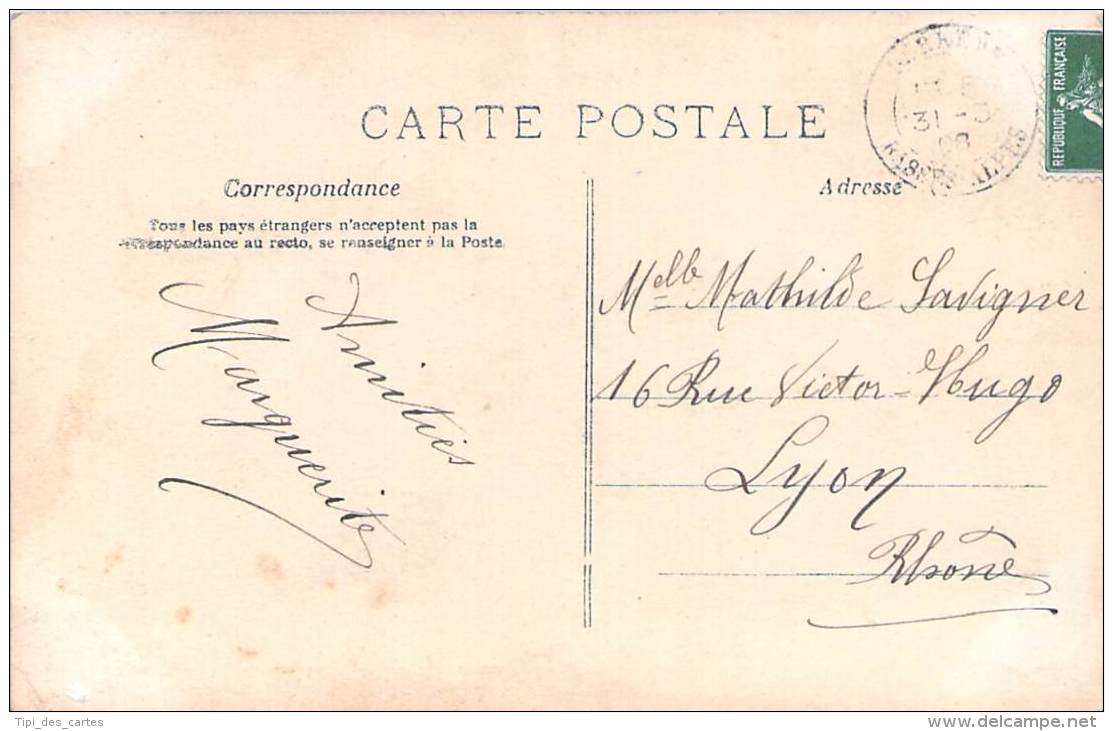 CARTE POSTALE
Correspondance
Tous les pays étrangers n'acceptent pas la
correspondance au recto, se renseigner à la Poste.
Amitiés
Marguerite
Adresse
31 - 3
08
BASSES-ALPES
REPUBLIQUE FRANÇAISE
Melle Mathilde Savigner
16 Rue Victor-Hugo
Lyon
Rhône
Tipi_des_cartes
www.delcampe.net